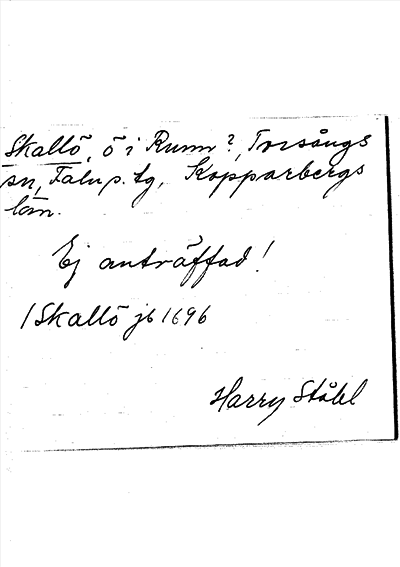 Skallö, ö i Runn?, Torsångs
sn, Falu p. tg, Kopparbergs
län.
Ej anträffad!
1 Skallö jb 1696
Harry Ståhl